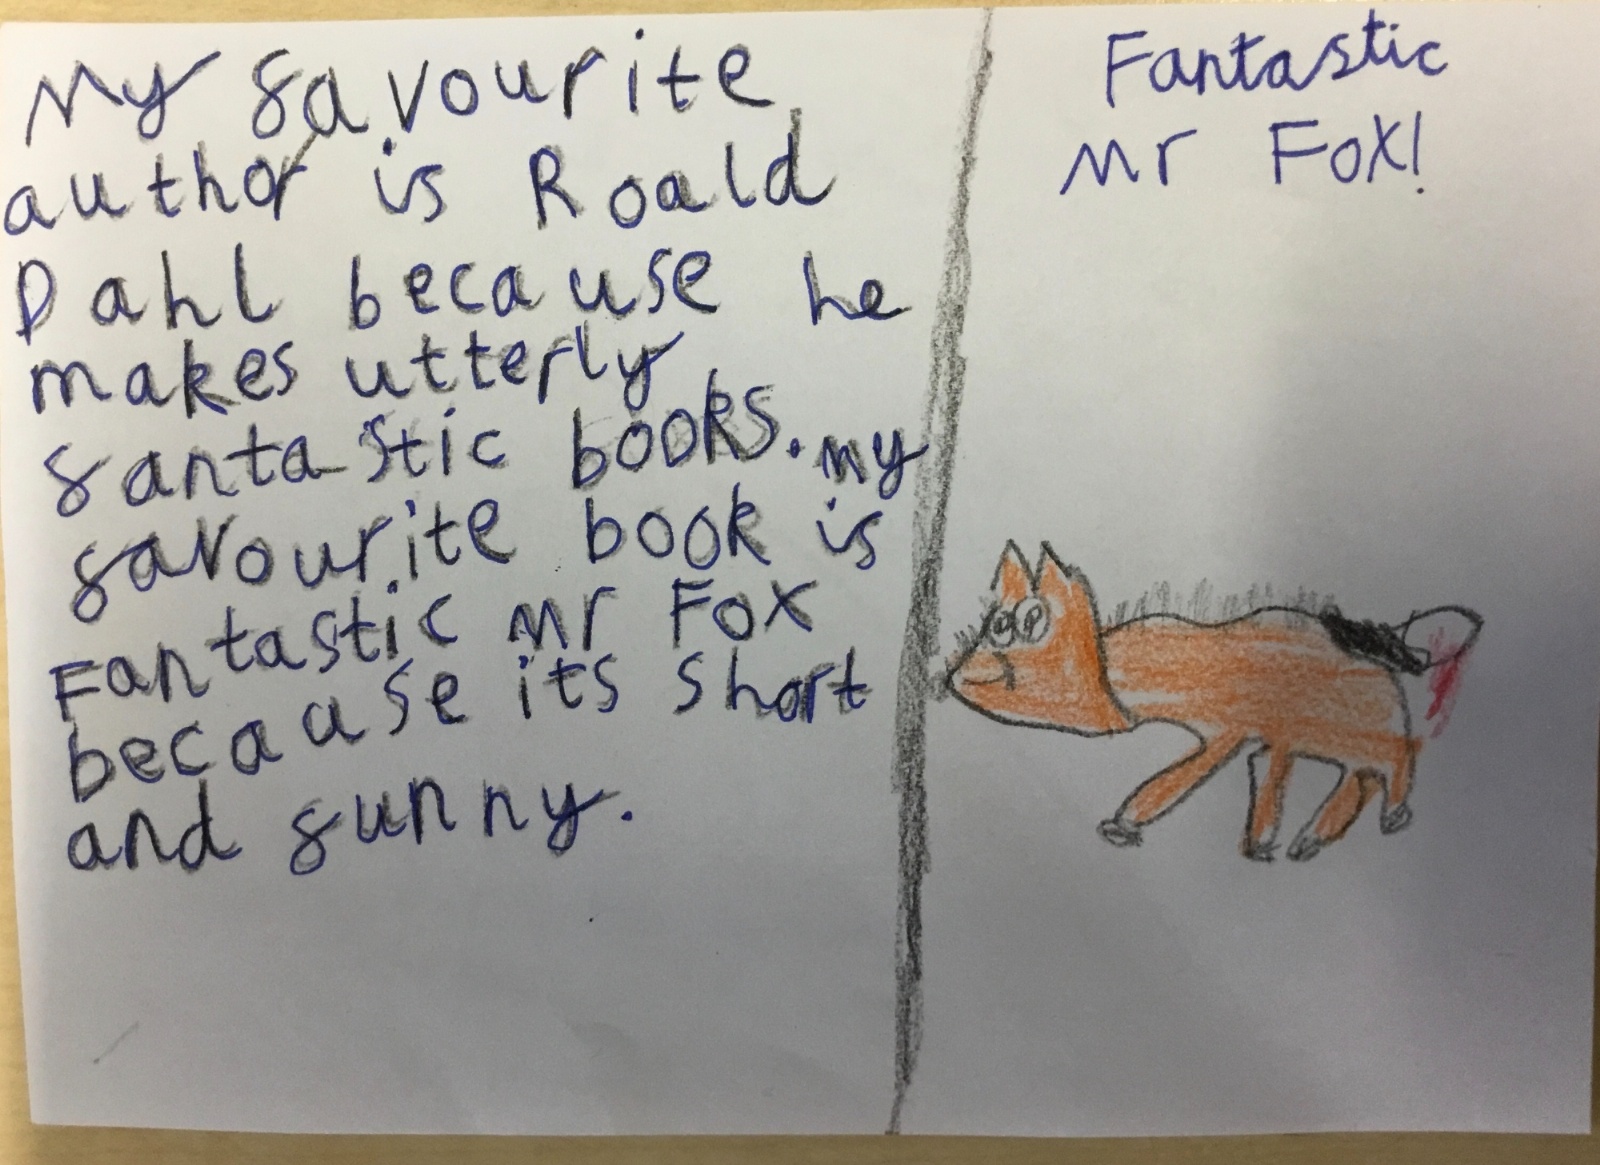 My favourite
author is Roald
Dahl because he
makes utterly
fantastic books. my
favourite book is
Fantastic Mr Fox
because its short
and funny.
Fantastic
Mr Fox!